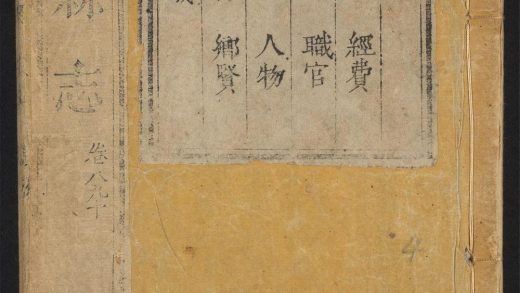 經費
職官
人物
鄉賢
志
卷八九十
4